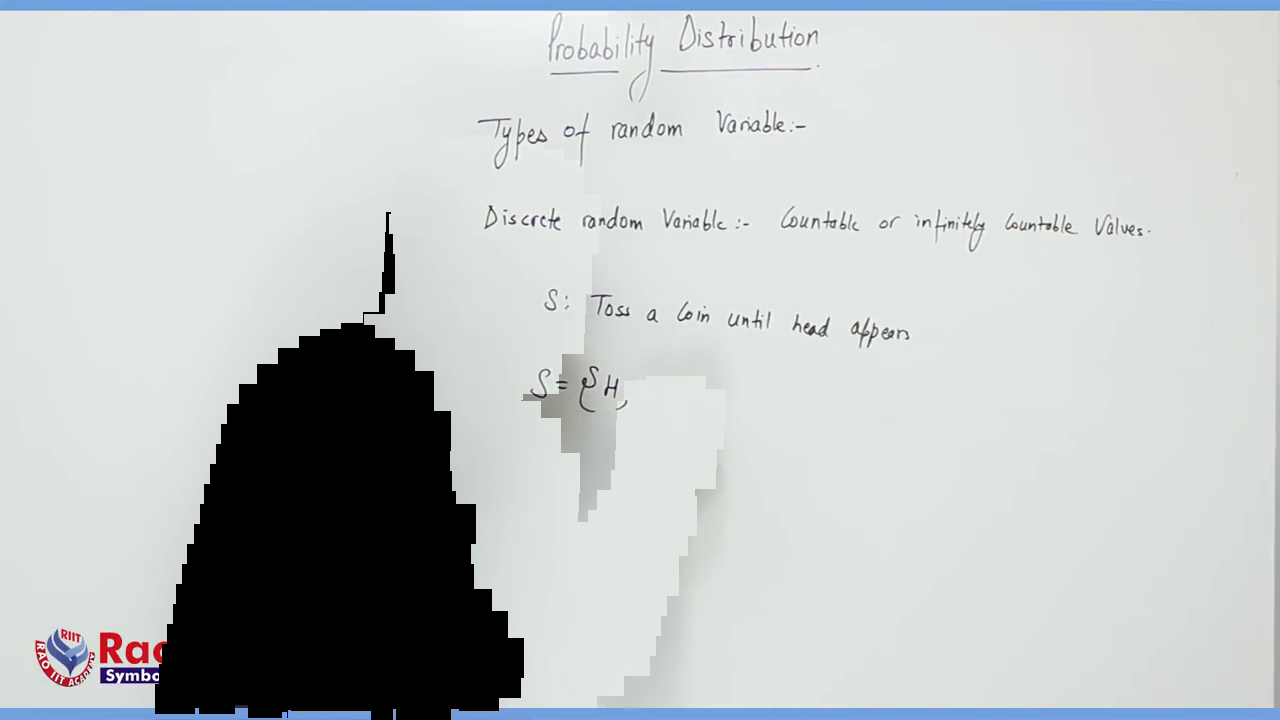 Probability Distribution
Types of random Variable:-
Discrete random Variable:- Countable or infinitely Countable Values.
S: Toss a Coin until head appears
S = { H,
RIIT
RAO IIT ACADEMY
Rao
Symbo